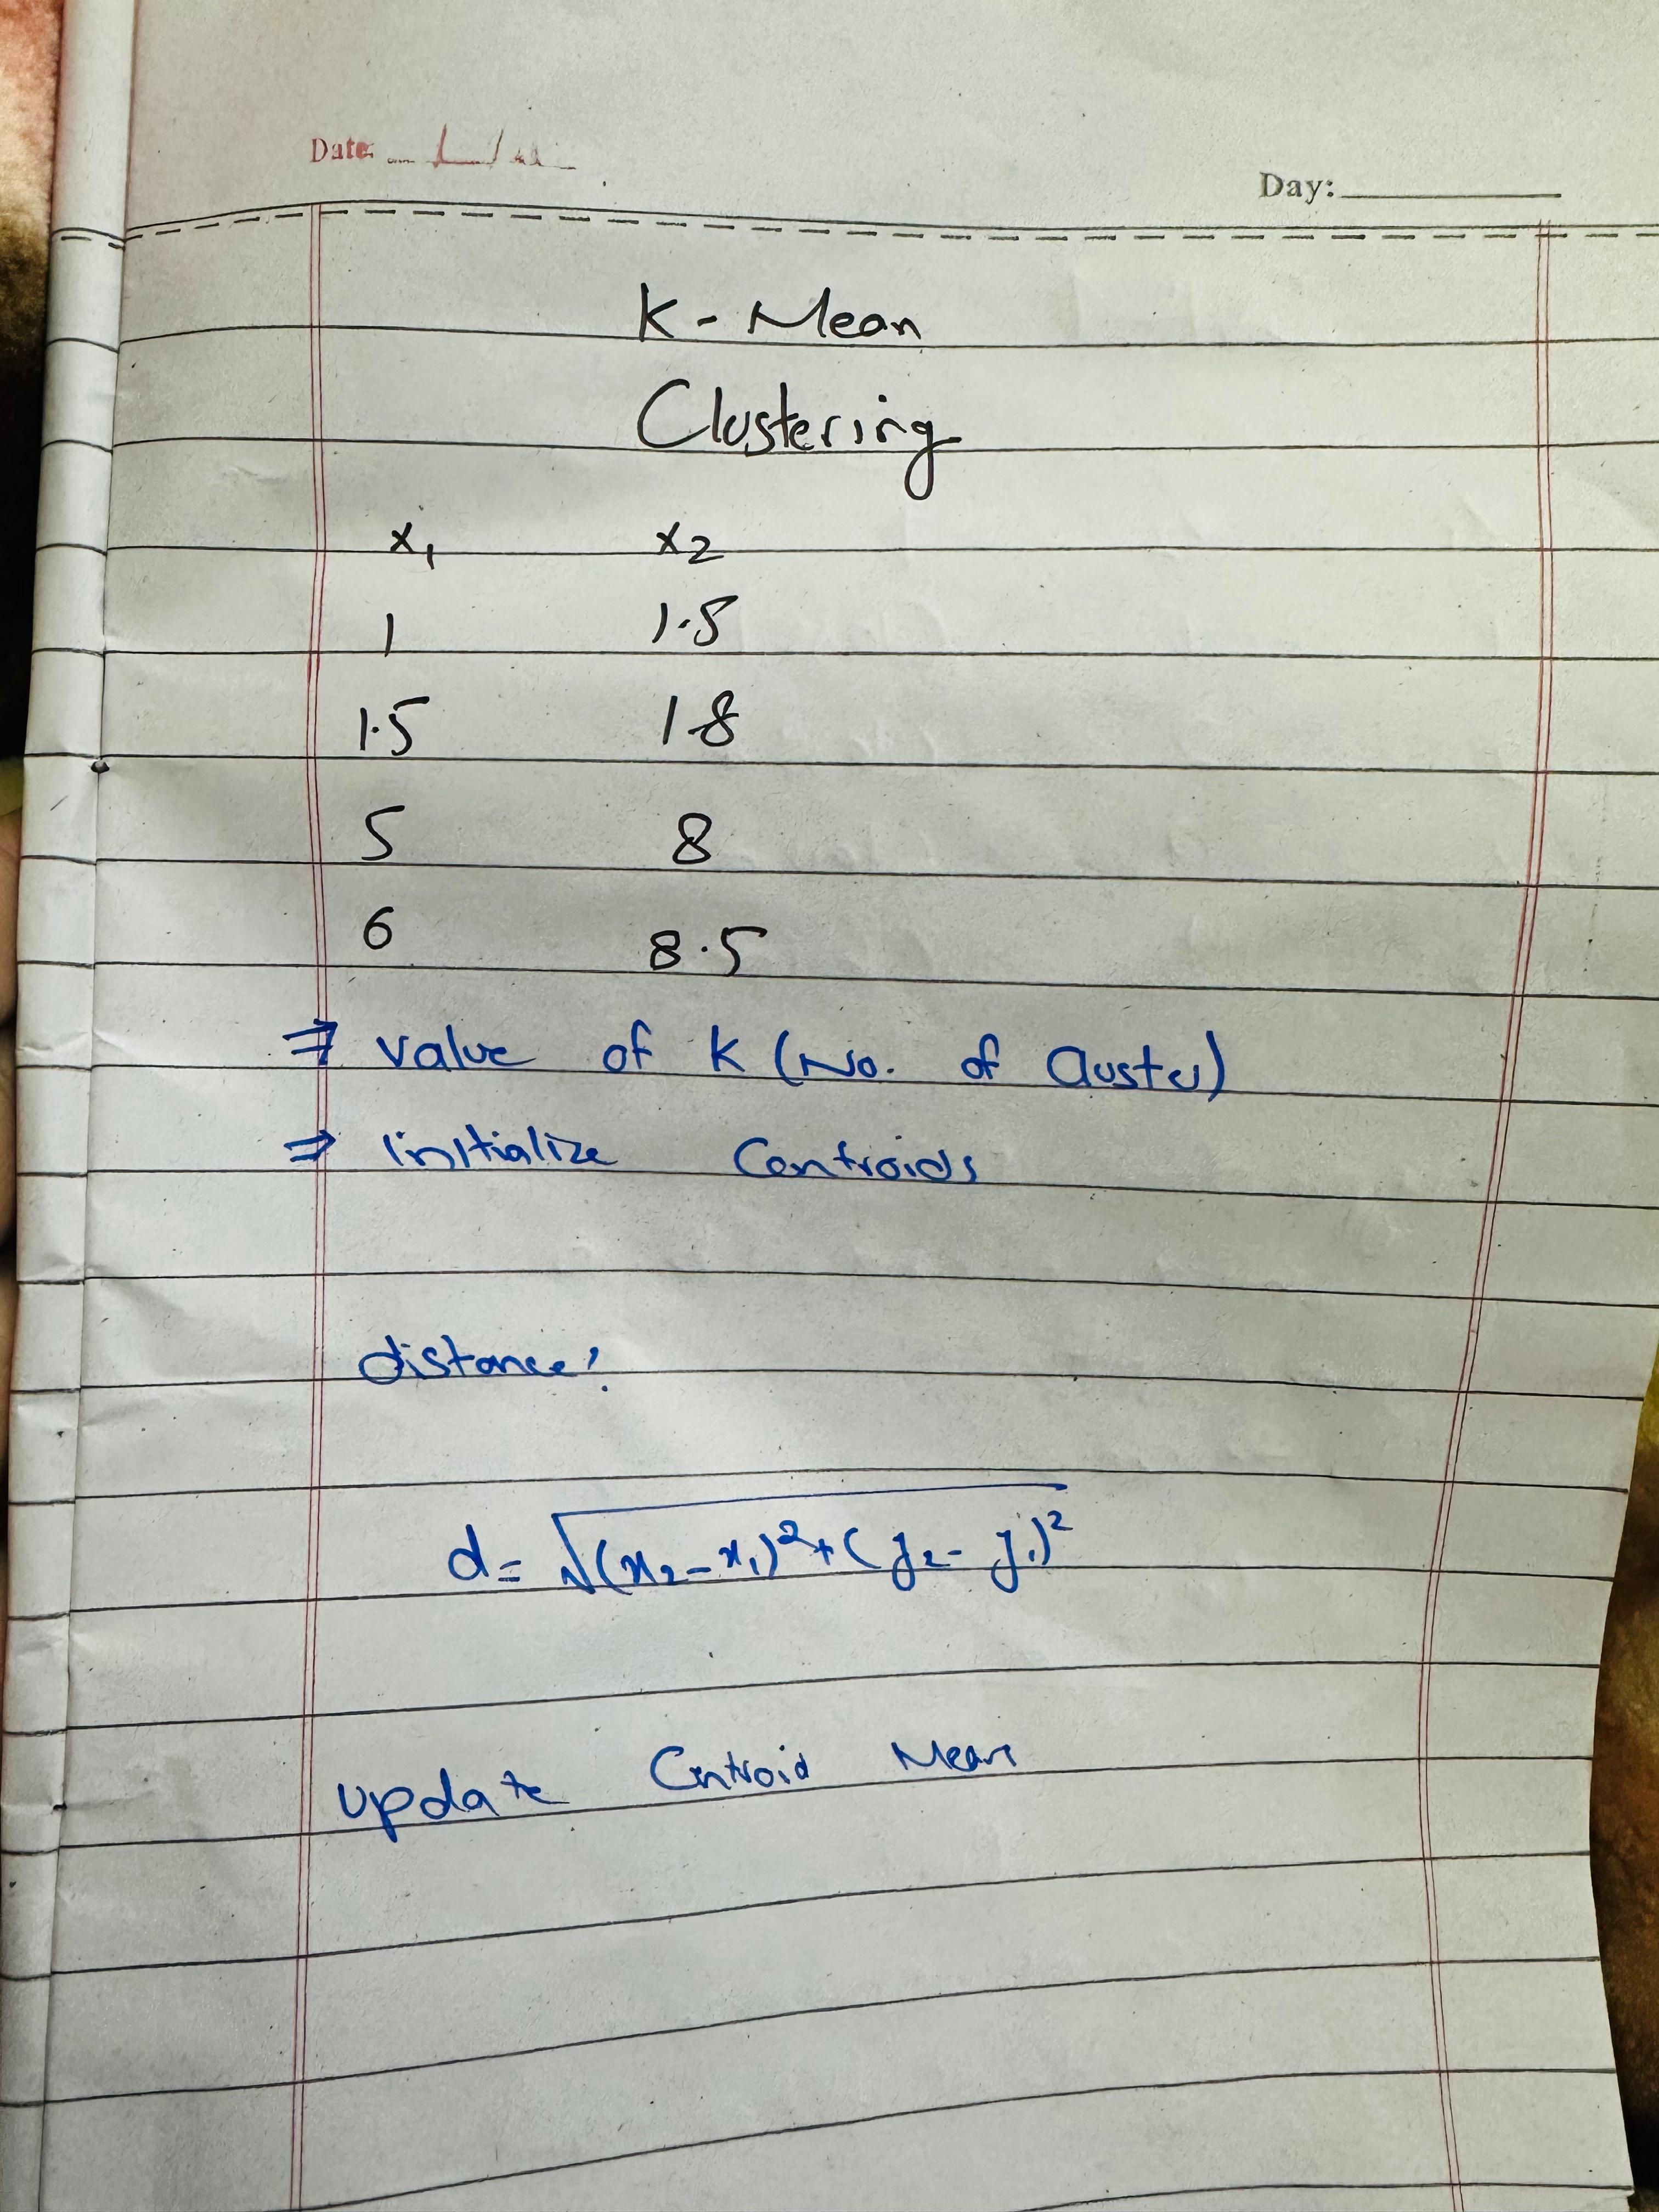 Date:
Day:
K-Mean
Clustering
x₁ x₂
1 1.5
1.5 1.8
5 8
6 8.5
⇒ value of K (No. of Cluster)
⇒ initialize Centroids
distance:
d = √(x₂-x₁)²+(y₂-y₁)²
update Centroid Mean